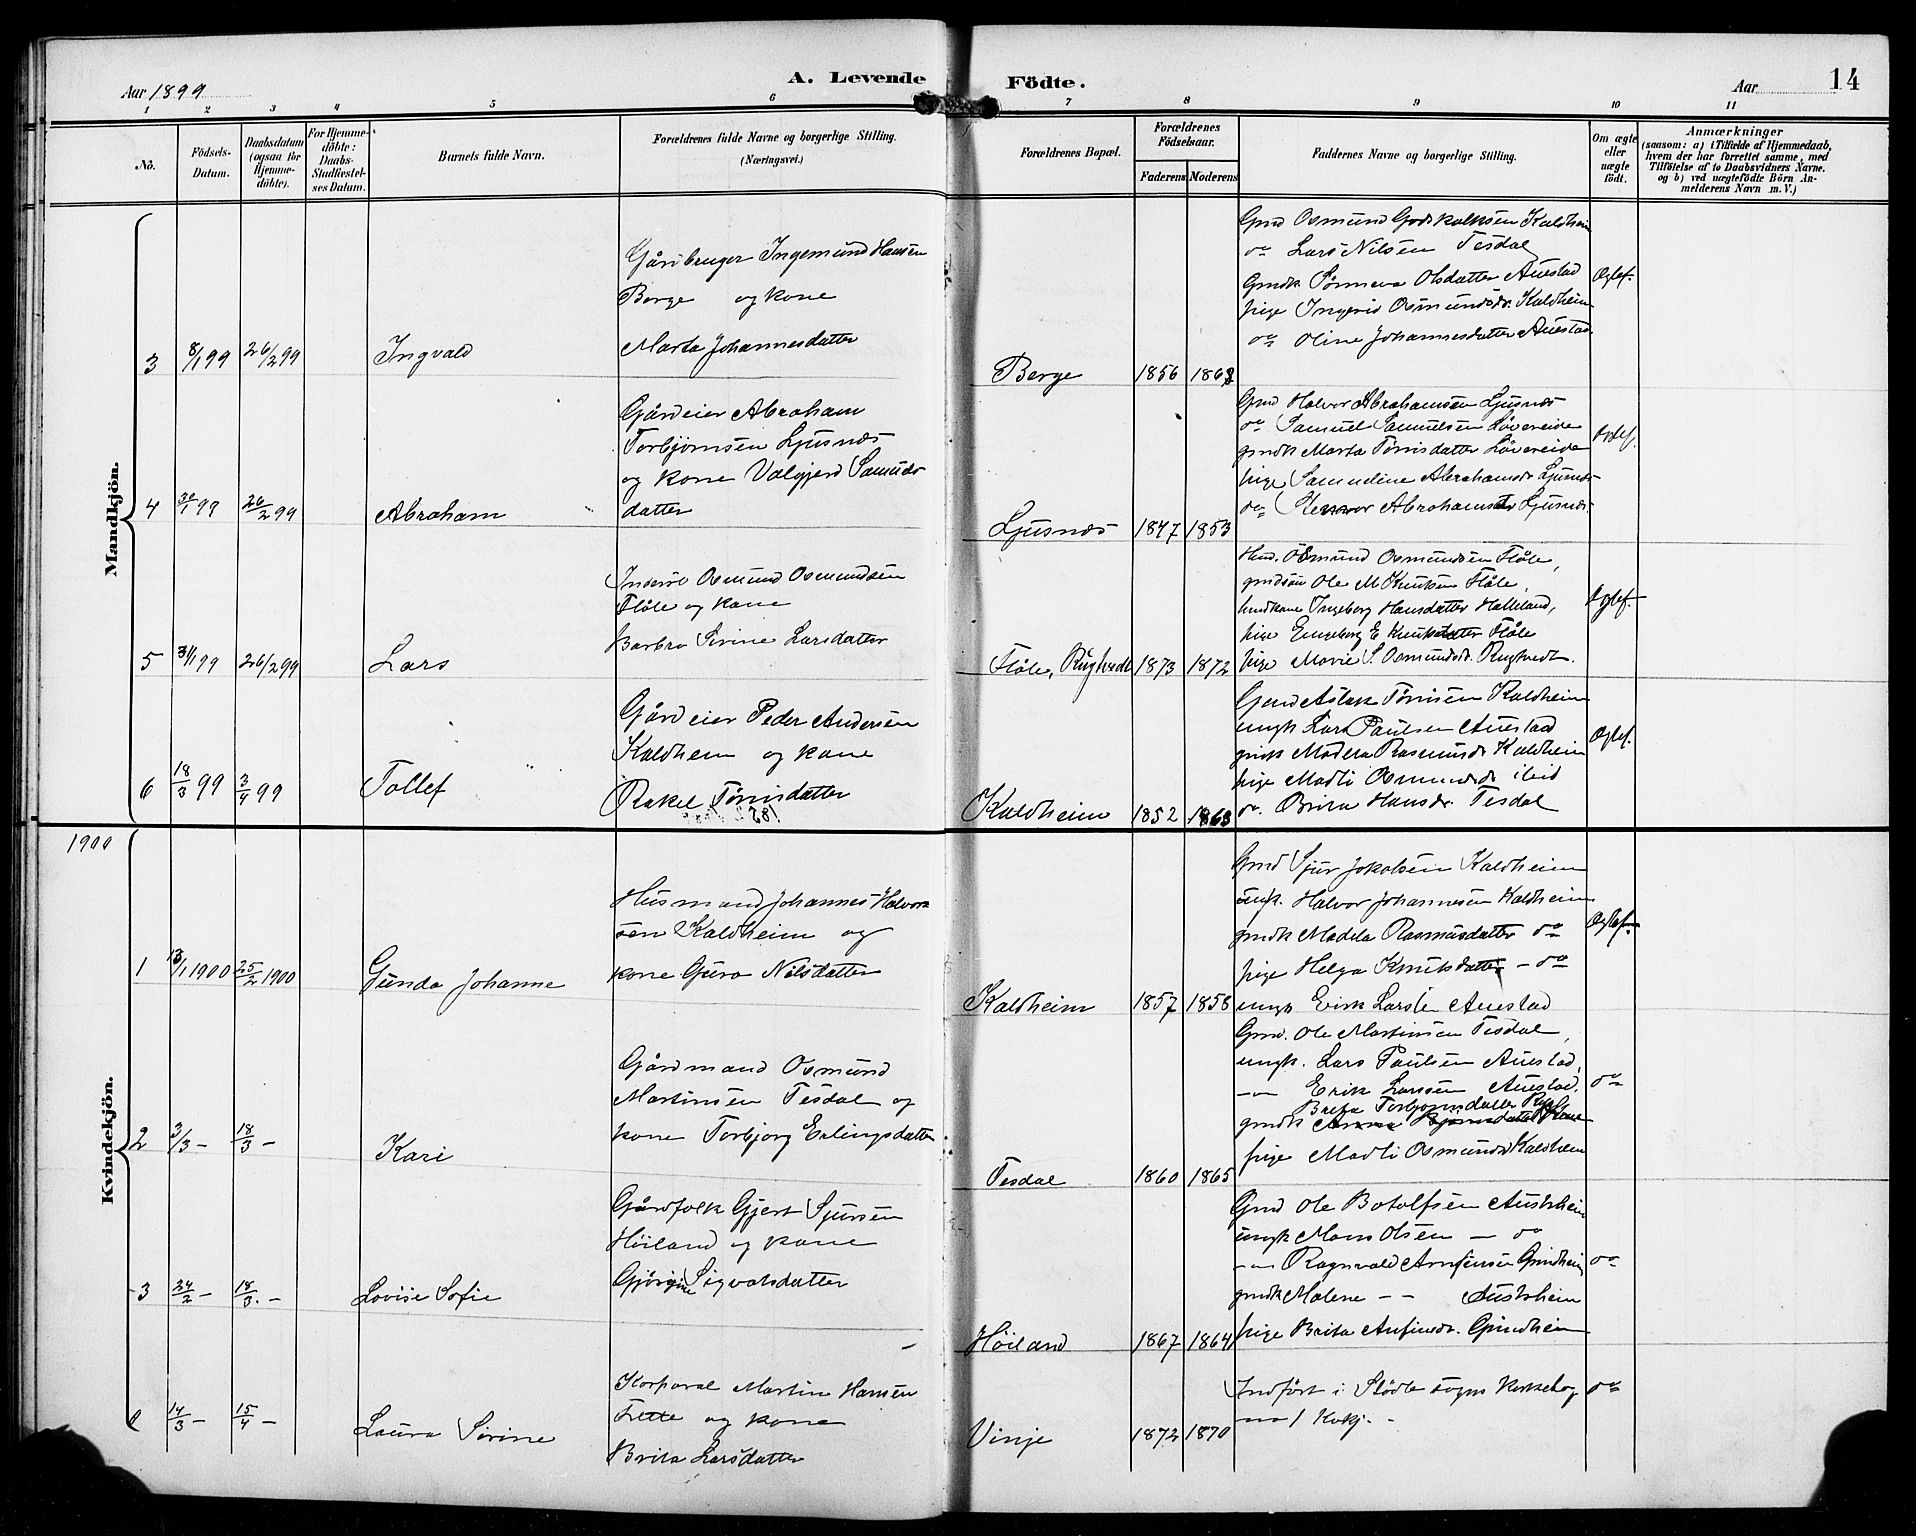 Aar 1899
A. Levende
Födte.
Aar
14
1
2
3
4
5
6
7
8
9
10
11
No.
Födsels-
Datum.
Daabsdatum
(ogsaa for
Hjemme-
döbte).
For Hjemme-
döbte:
Daabs-
Stadfæstel-
ses Datum.
Barnets fulde Navn.
Forældrenes fulde Navne og borgerlige Stilling.
(Næringsvei.)
Forældrenes Bopæl.
Forældrenes
Födselsaar.
Faderens
Moderens
Faddernes Navne og borgerlige Stilling.
Om ægte
eller
uægte
födt.
Anmærkninger
(saasom: a) i Tilfælde af Hjemmedaab,
hvem der har forrettet samme, med
Tilföielse af to Daabsvidners Navne.
og b) ved uægtefödte Börn An-
melderens Navn m. V.)
Mandkjön.
3
8/1 99
26/2 99
Ingvald
Gårdbruger Ingemund Hansen
Berge og kone
Marta Johannesdatter
Berge
1856
Gmd Osmund Godskalksen Kaldheim
do Lars Nilsen Tesdal
Gmdk Sönneva Olsdatter Auestad
pige Ingerid Osmundsdr. Kaldheim
do Oline Johannesdatter Auestad
Ægtef.
4
30/1 99
26/2 99
Abraham
Gårdeier Abraham
Torbjørnsen Ljusnes
og kone Valgjerd Samuels
datter
Ljusnes
1847
1853
Gmd Halvor Abrahamsen Ljusnes
do Samuel Samuelsen Løvereide
gmdk Marta Tørrisdatter Løvereide
pige Samueline Abrahamsdr Ljusnes
do Abrahamsdr Ljusnes
Ægtef.
5
31/1 99
26/2 99
Lars
Inderst Osmund Osmundsen
Flåte og kone
Barbra Serine Larsdatter
Flåte, Rugtvedt
1873
1872
Hmd. Osmund Osmundsen Flåte,
gmdsøn Ole M Knutsen Flåte,
hmdkone Ingeborg Hansdatter Halleland,
pige Engeborg E Knutsdatter Flåte
pige Marie S. Osmundsdr. Rugtvedt.
Ægtef.
6
18/3 99
3/4 99
Tollef
Gårdeier Peder Andersen
Kaldheim og kone
Rakel Tørrisdatter
Kaldheim
1852
1863
Gmd Aslak Tørrisen Kaldheim
ungk Lars Paulsen Auestad
gmdk Madela Rasmusdr Kaldheim
pige Madli Osmundsdr ibid
do. Brita Hansdr. Tesdal
Ægtef.
1900
Kvindekjön.
1
13/1 1900
25/2 1900
Gunda Johanne
Husmand Johannes Halvor
sen Kaldheim og
kone Guro Nilsdatter
Kaldheim
1857
1858
Gmd Sjur Jakobsen Kaldheim
ungk. Halvor Johannesen Kaldheim
gmdk Madela Rasmusdatter do
pige Helga Knutsdatter – do
ungk Erik Larsen Auestad
Ægtef.
2
3/3 –
18/3 –
Kari
Gårdmand Osmund
Martinsen Tesdal og
kone Torbjorg Erlingsdatter
Tesdal
1860
1865
Gmd. Ole Martinsen Tesdal,
ungk. Lars Paulsen Auestad,
– Erik Larssen Auestad.
Brita Torbjørnsdatter
gmdk
pige Madli Osmundsdr Kaldheim
do
3
24/2 –
18/3 –
Lovise Sofie
Gårdfolk Gjert Sjursen
Høiland og kone
Gjørgine Sigvatsdatter
Høiland
1867
1864
Gmd Ole Botolfsen Austrheim
ungk Mons Olsen – do
– Ragnvald Arnfinsen Grindheim
gmdk Malene – – Austrheim
pige Brita Anfinsdr. Grindheim
do
14/3 –
15/4 –
Laura Serine
Korporal Martin Hansen
og kone
Brita Larsdatter
Vinje
1872
1870
Indført i Stødle sogns kirkebog
no 1 Kvkj.
do